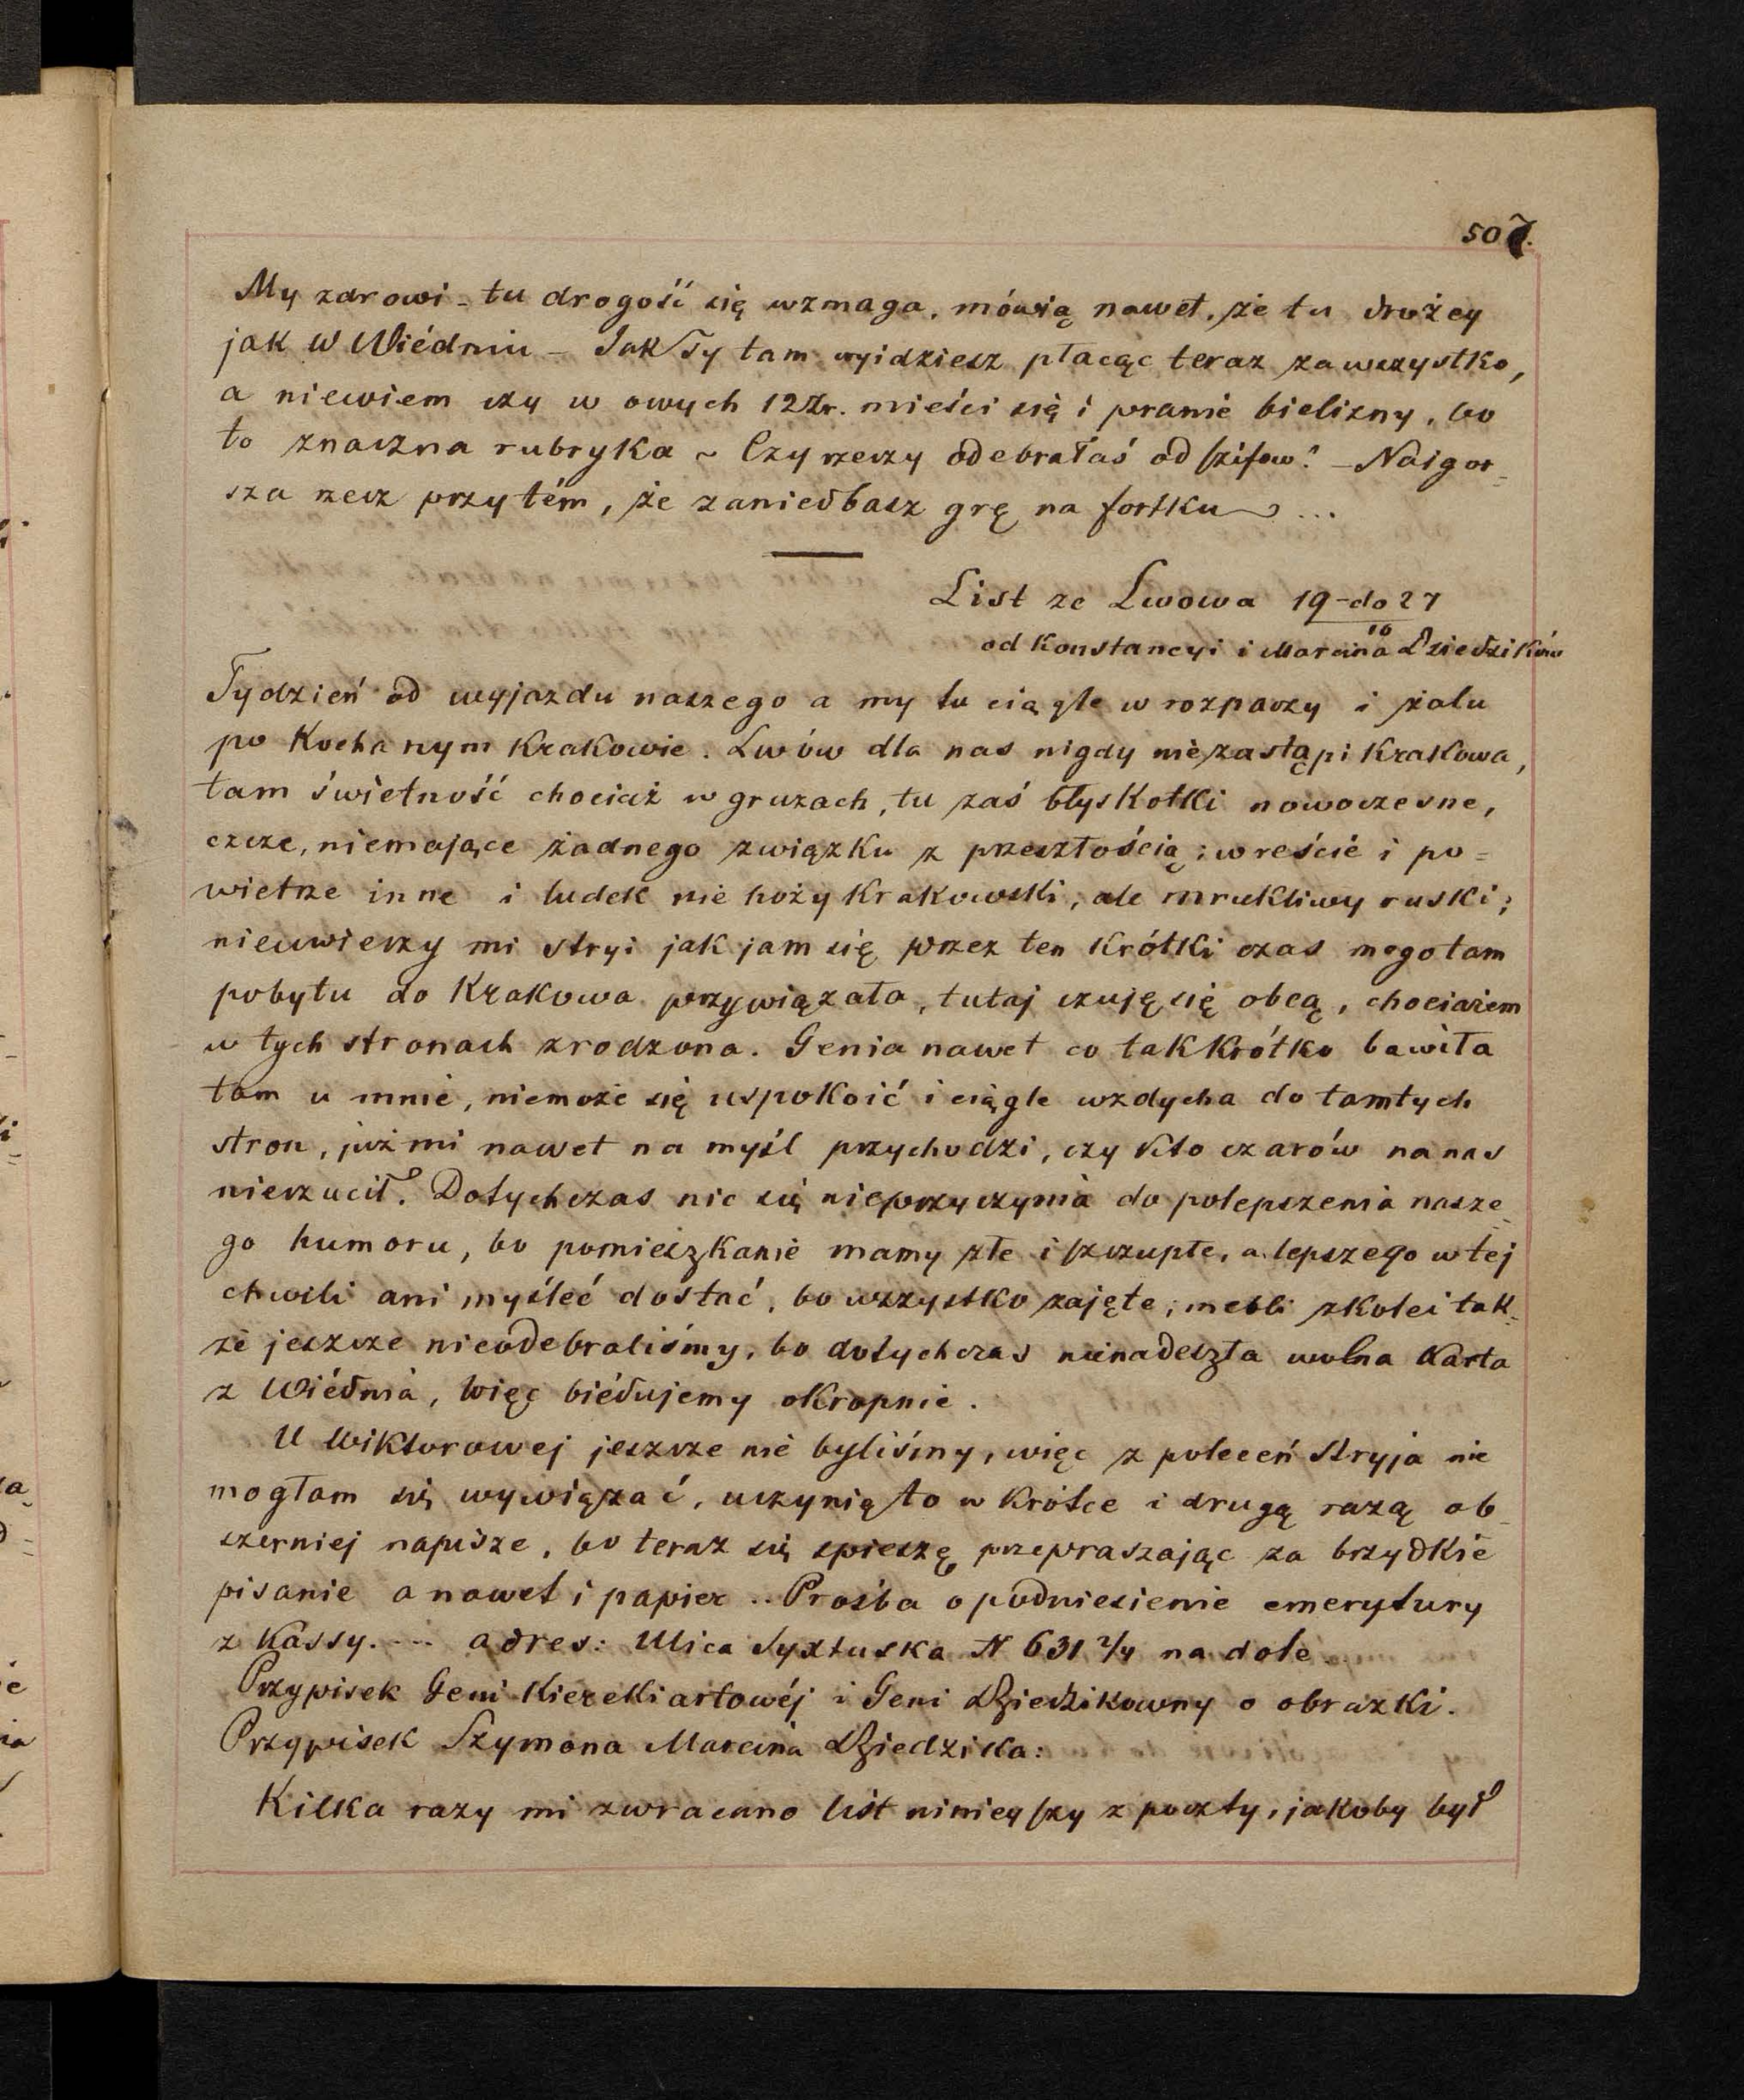 507.
My zdrowi - tu drogość się wzmaga, mówią nawet, że tu drożey
jak w Wiédniu - Jak Ty tam wyidziesz płacąc teraz za wszystko,
a niewiem czy w owych 12 Zr. mieści się i pranie bielizny, bo
to znaczna rubryka ~ Czy rzeczy odebrałaś od Szifów? - Naigor-
sza rzecz przytém, że zaniedbasz grę na fortku ...
List ze Lwowa 19 - do 27
10
od Konstancyi i Marcina Dziedzików
Tydzień od wyjazdu naszego a my tu ciągle w rozpaczy i żalu
po Kochanym Krakowie. Lwów dla nas nigdy niezastąpi Krakowa,
tam świetność chociaż w gruzach, tu zaś błyskotki nowoczesne,
czcze, niemające żadnego związku z przeszłością; wreście i po=
wietrze inne i ludek nie hoży Krakowski, ale mrukliwy ruski;
nieuwierzy mi stryi jak jam się przez ten krótki czas mego tam
pobytu do Krakowa przywiązała, tutaj czuję się obcą, chociażem
w tych stronach zrodzona. Genia nawet co tak krótko bawiła
tam u mnie, niemoże się uspokoić i ciągle wzdycha do tamtych
stron, już mi nawet na myśl przychodzi, czy kto czarów na nas
nierzucił. Dotychczas nic się nieprzyczynia do polepszenia nasze-
go humoru, bo pomieszkanie mamy złe i szczupłe, a lepszego w tej
chwili ani myśleć dostać, bo wszystko zajęte; mebli z kolei tak-
że jeszcze nieodebraliśmy, bo dotychczas nienadeszła wolna karta
z Wiédnia, więc biédujemy okropnie.
U Wiktorowej jeszcze nie byliśmy, więc z poleceń Stryja nie
mogłam się wywiązać, uczynię to w krótce i drugą razą ob-
szerniej napisze, bo teraz się spieszę przepraszając za brzydkie
pisanie a nawet i papier .. Prośba o podniesienie emerytury
z Kassy. --- adres: Ulica Syxtuska N 631 2/4 na dole
Przypisek Geni Kierekiartowéj i Geni Dziedzikowny o obrazki.
Przypisek Szymona Marcina Dziedzika:
Kilka razy mi zwracano list nинieyszy z poczty, jakoby był